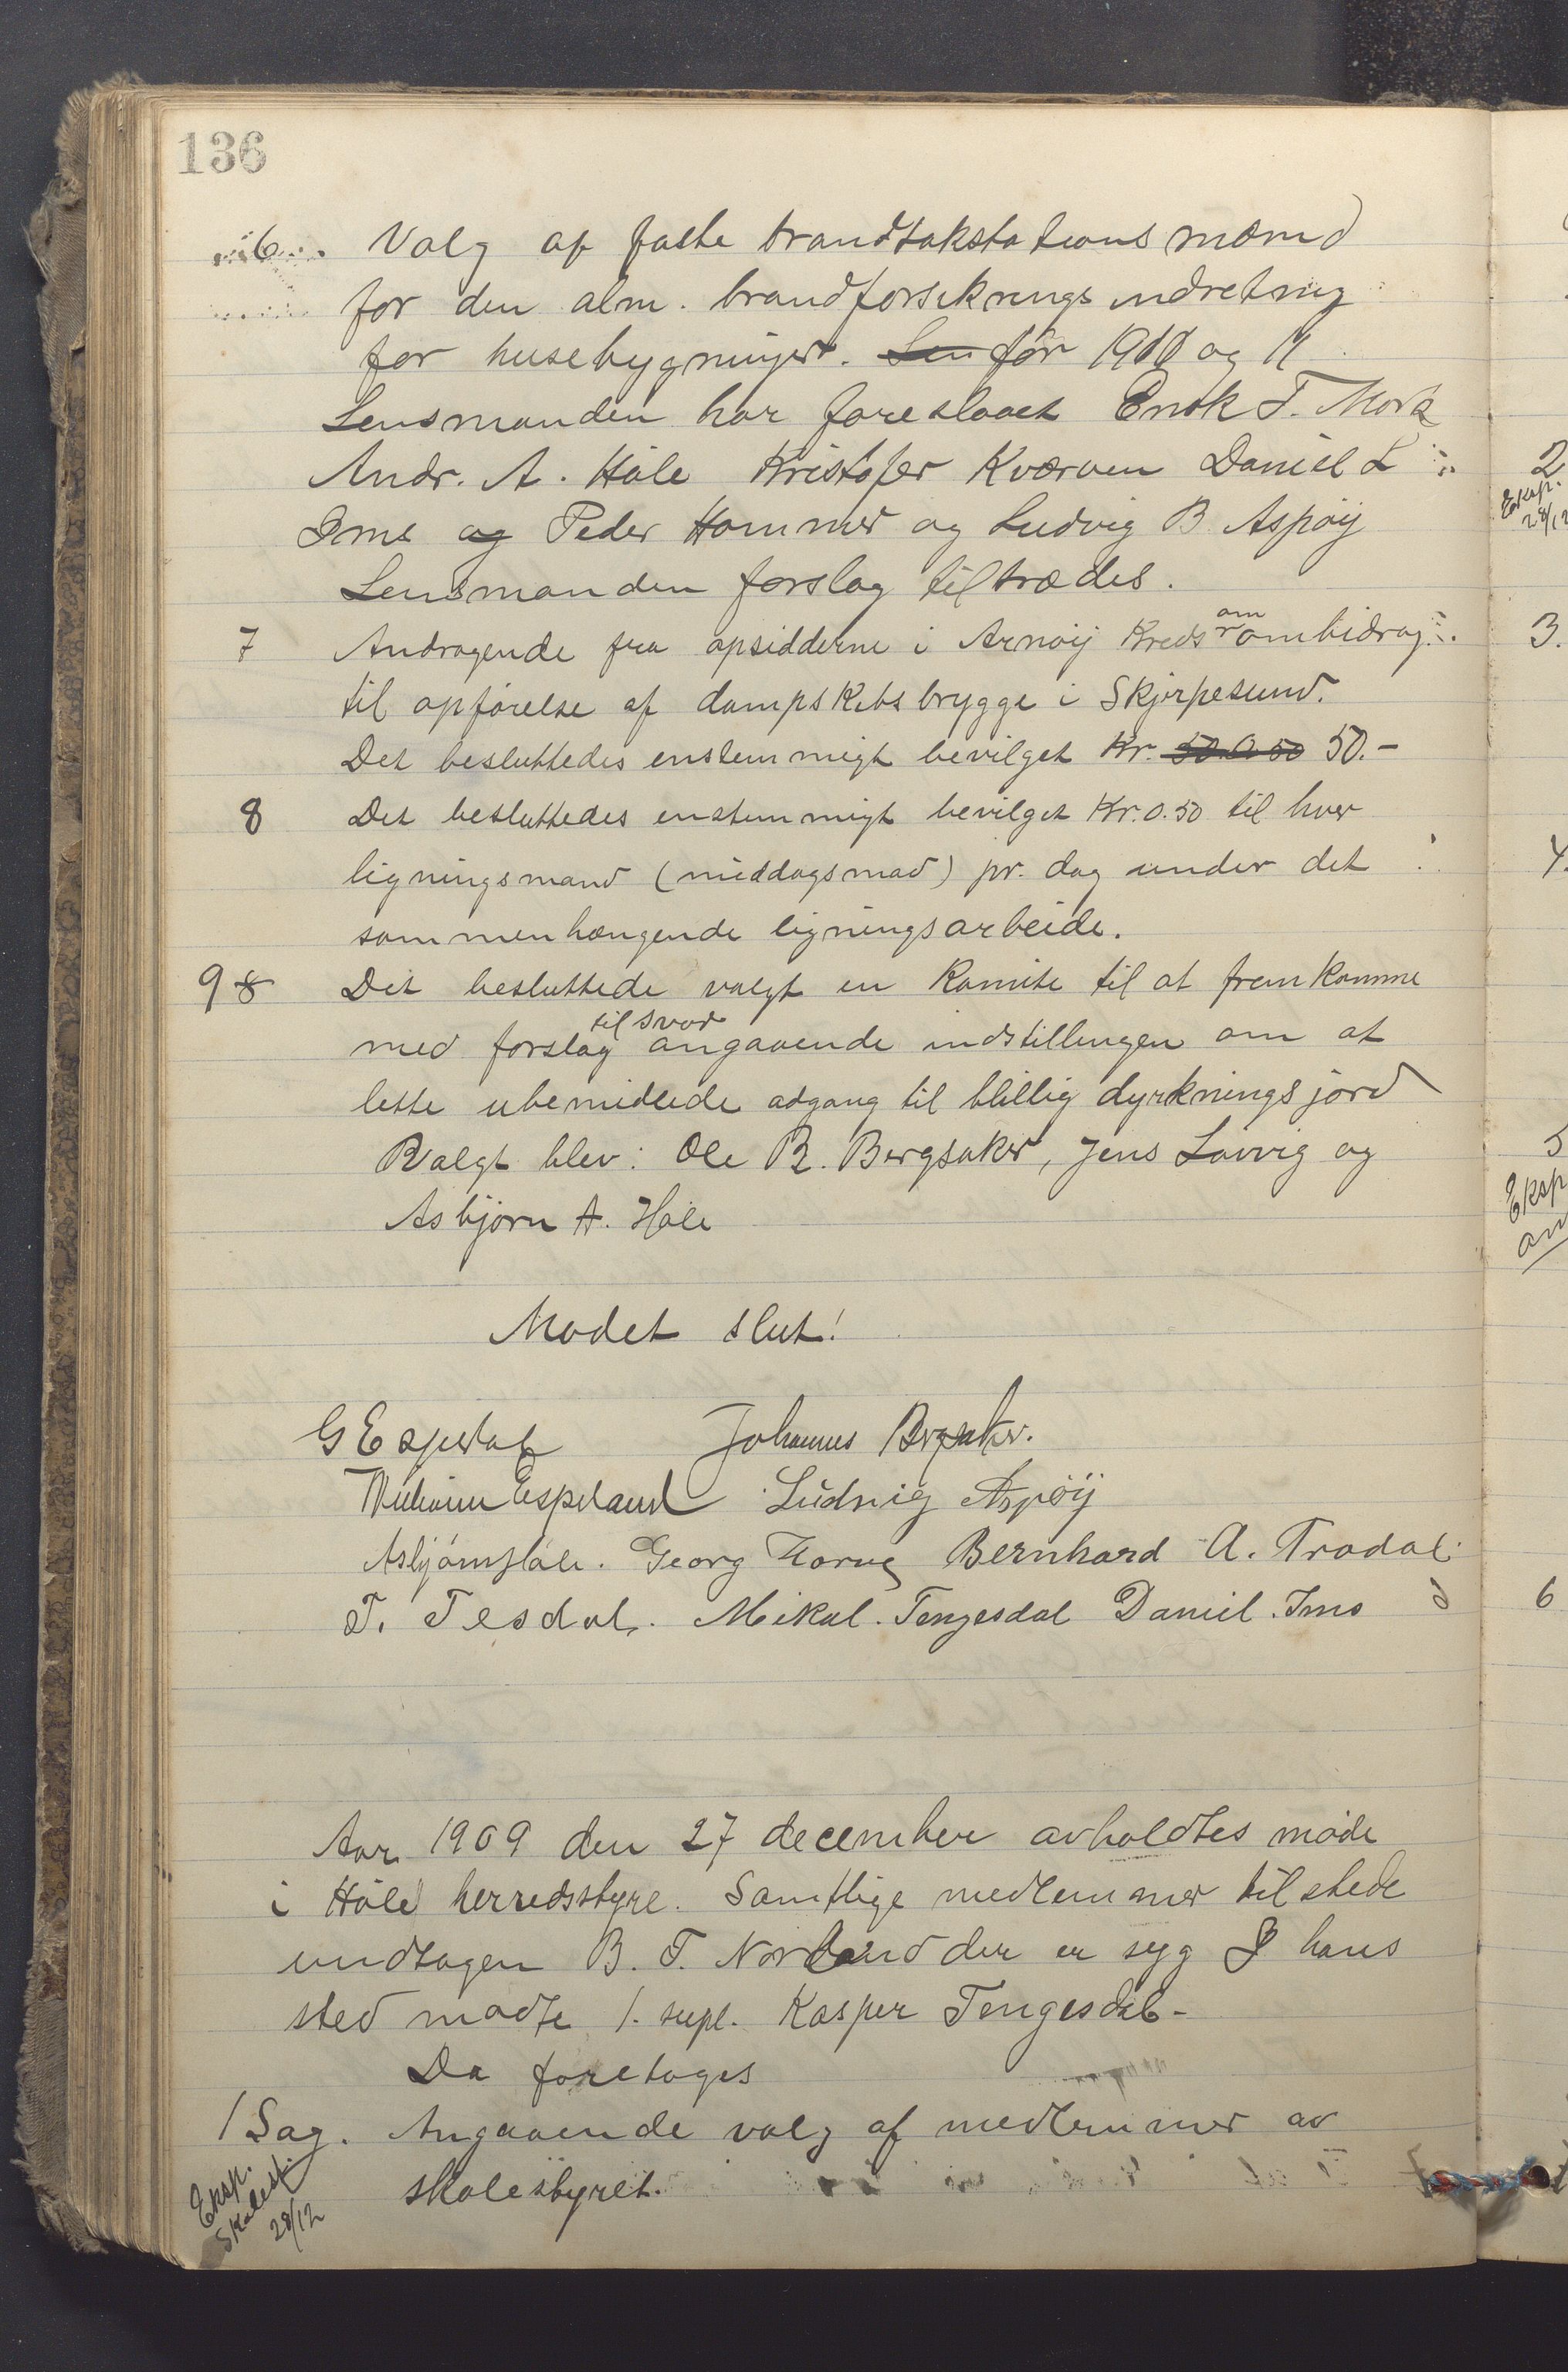 136
6. Valg af faste brandtakstationsmænd
for den alm. brandforsikringsindretning
for husebygninger. Len for 1910 og 11
Lensmanden har foreslaaet Enok T. Mork
Andr. A. Høle Kristofer Kværven Daniel L
Ims og Peder Hommer og Ludvig B Aspøy
Lensmanden forslag tiltrædes.
7 Andragende fra opsidderne i Arnøy Kreds om ombidrag
til opførelse af dampskibsbrygge i Skjørpesund.
Det besluttedes enstemmigt bevilget Kr. 50.-
8 Det besluttedes enstemmigt bevilget Kr. 0.50 til hver
ligningsmand (middagsmad) pr. dag under det
sammenhængende ligningsarbeide.
9 8 Det besluttede valgt en Komite til at fremkomme
med forslag til svar angaaende indstillingen om at
lette ubemidlede adgang til billig dyrkningsjord
Valgt blev: Ole R. Bergsaker, Jens Løvvig og
Asbjørn A. Høle
Mødet slut!
G Espedal Johannes Bergsaker.
Wilhelm Espeland Ludvig Aspøy
Asbjørn Høle. Georg Horve Bernhard A. Trodal.
T. Tesdal. Mikal. Tengesdal Daniel. Ims
Aar 1909 den 27 december avholdtes møde
i Høle herredsstyre. Samtlige medlemmer tilstede
undtagen B. T. Norland der er syg I hans
sted mødte 1. supl. Kasper Tengesdal-
Da foretoges
1 Sag. Angaaende valg af medlemmer av
skolestyret.
Eksp.
Skolest.
28/12
2
Eksp.
28/12
3.
4.
5
Eksp
6